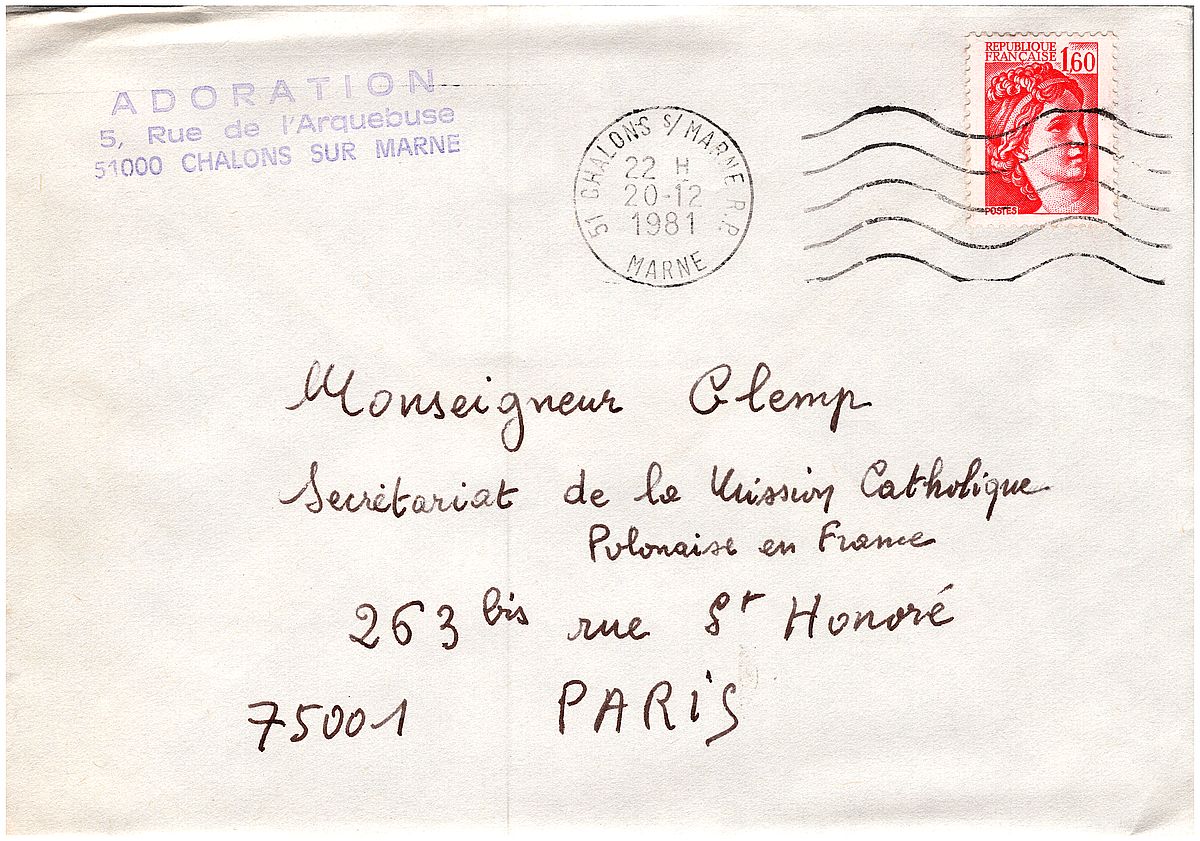 ADORATION
5, Rue de l'Arquebuse
51000 CHALONS SUR MARNE
51 CHALONS S/MARNE R.P.
22 H
20-12
1981
MARNE
REPUBLIQUE
FRANÇAISE 1,60
POSTES
Monseigneur Glemp
Secrétariat de la Mission Catholique
Polonaise en France
263 bis rue St Honoré
75001 PARIS